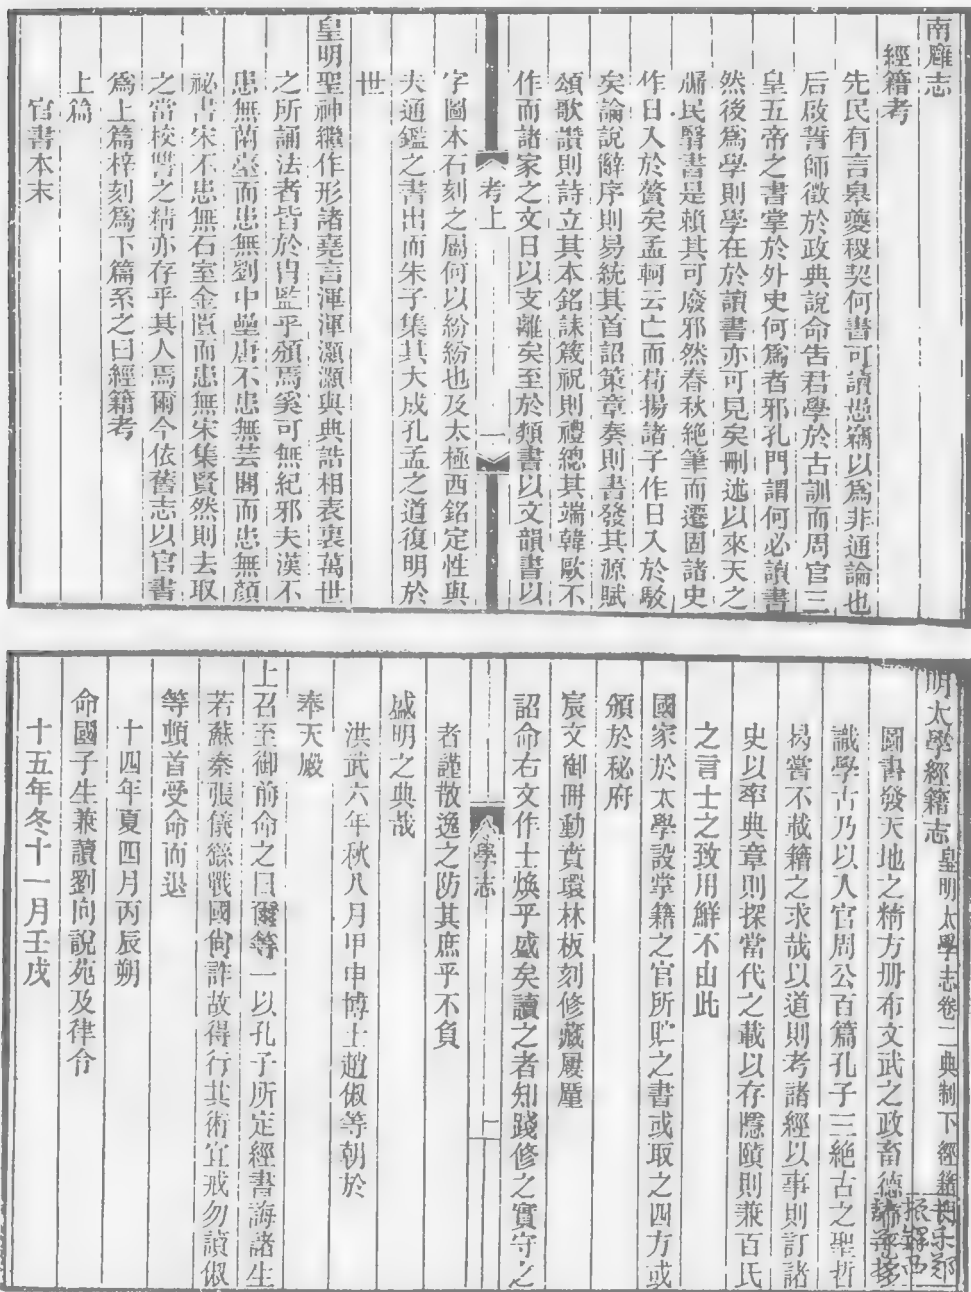 南廱志
經籍考
先民有言皋夔稷契何書可讀愚竊以爲非通論也
后啟誓師徵於政典說命告君學於古訓而周官三
皇五帝之書掌於外史何爲者邪孔門謂何必讀書
然後爲學則學在於讀書亦可見矣刪述以來天之
牖民賢書是賴其可廢邪然春秋絶筆而遷固諸史
作日入於贅矣孟軻云亡而荀揚諸子作日入於駁
矣論說辭序則易統其首詔策章奏則書發其源賦
頌歌讚則詩立其本銘誄箴祝則禮總其端韓歐不
作而諸家之文日以支離矣至於類書以文韻書以
考上
一
字圖本石刻之屬何以紛紛也及太極西銘定性與
夫通鑑之書出而朱子集其大成孔孟之道復明於
世
皇明聖神繼作形諸堯言渾渾灝灝與典誥相表裏萬世
之所誦法者皆於胄監乎頒焉奚可無紀邪夫漢不
患無蘭臺而患無劉中壘唐不患無芸閣而患無顏
祕書宋不患無石室金匱而患無宋集賢然則去取
之當校讐之精亦存乎其人焉爾今依舊志以官書
爲上篇梓刻爲下篇系之曰經籍考
上篇
官書本末
明太學經籍志
皇明太學志卷二典制下經籍
圖書發天地之精方册布文武之政畜德
識學古乃以入官周公百篇孔子三絶古之聖哲
曷嘗不載籍之求哉以道則考諸經以事則訂諸
史以率典章則探當代之載以存隱賾則兼百氏
之言士之致用鮮不由此
國家於太學設掌籍之官所貯之書或取之四方或
頒於秘府
宸文御冊動賁環林板刻修藏屢厪
詔命右文作士煥乎盛矣讀之者知踐修之實守之
學志
一
者謹散逸之防其庶乎不負
盛明之典哉
洪武六年秋八月甲申博士趙俶等朝於
奉天殿
上召至御前命之曰爾等一以孔子所定經書誨諸生
若蘇秦張儀繇戰國尙詐故得行其術宜戒勿讀俶
等頓首受命而退
十四年夏四月丙辰朔
命國子生兼讀劉向說苑及律令
十五年冬十一月壬戌